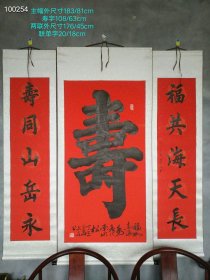 100254
主幅外尺寸183/81cm
寿字108/63cm
两联外尺寸176/45cm
联单字20/18cm
福共海天長
壽
壽同山岳永